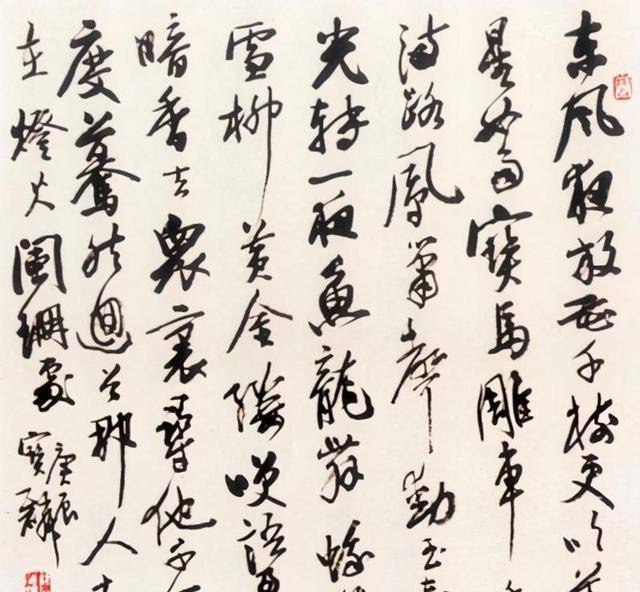 東風夜放花千樹更吹落
星如雨寶馬雕車
滿路鳳簫聲動玉壺
光轉一夜魚龍舞蛾
雪柳黃金縷笑語盈
暗香去眾裏尋他千
度驀然迴首那人
在燈火闌珊處
庚辰
寶麟